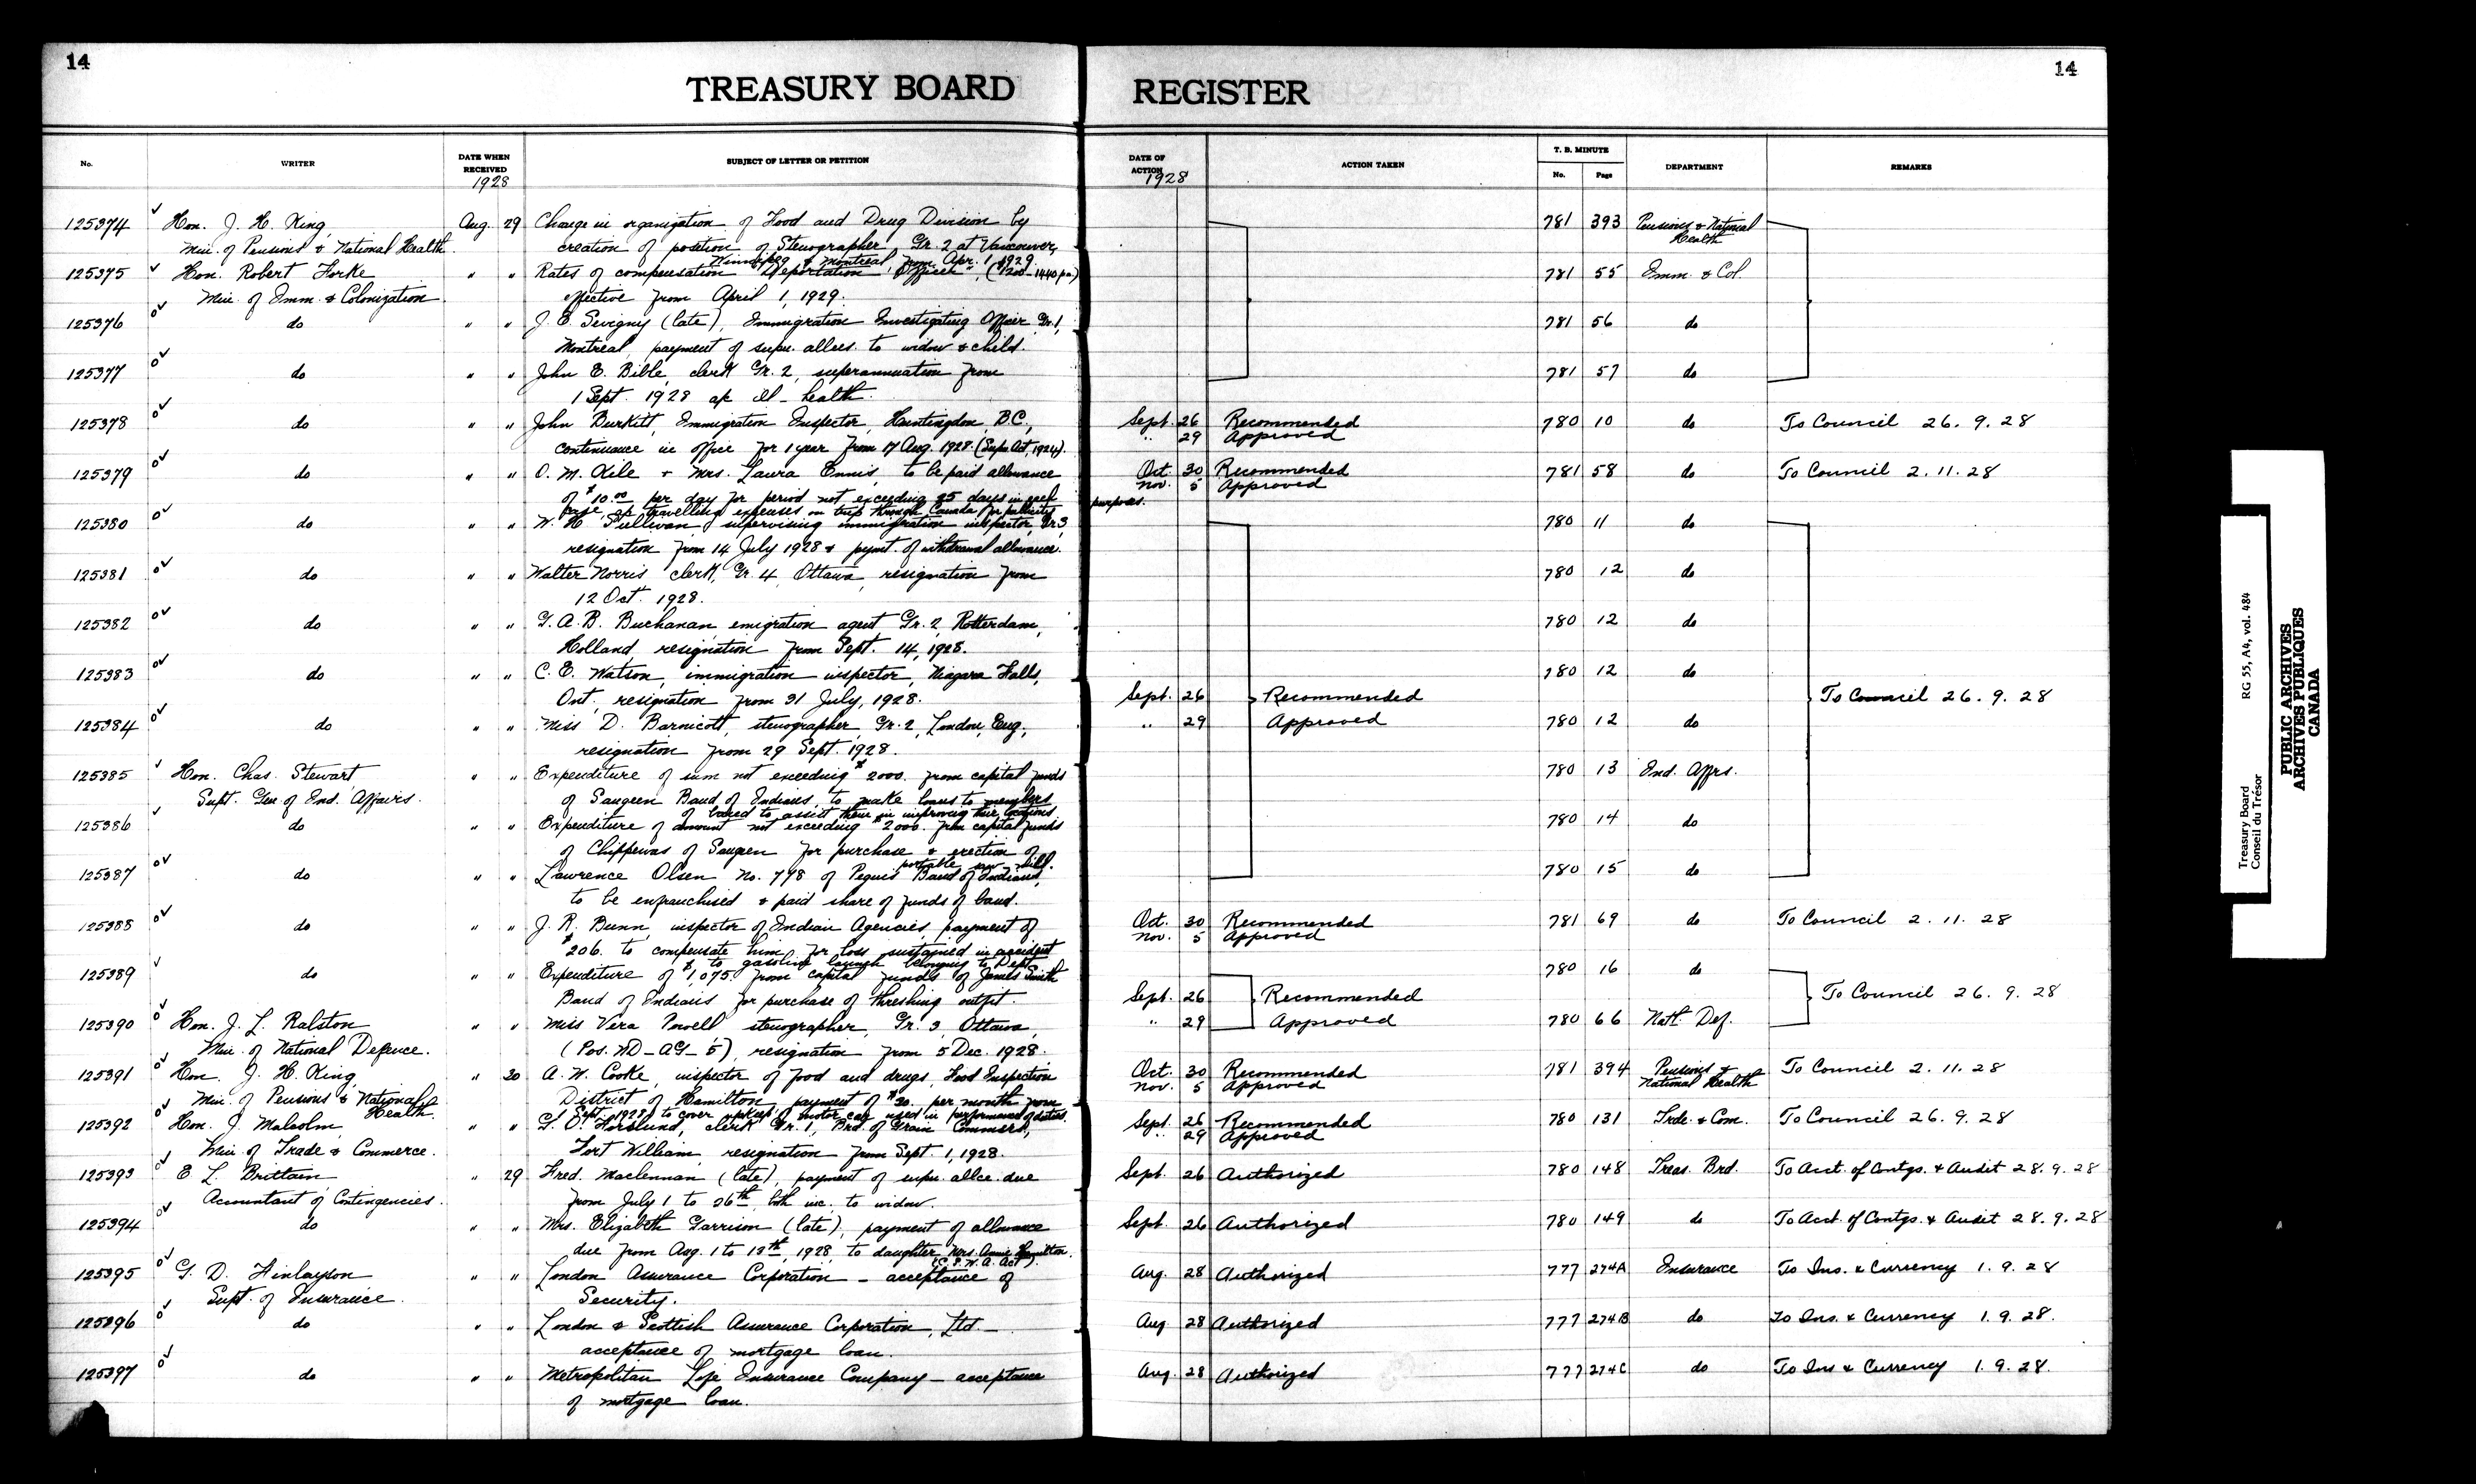 14
TREASURY BOARD REGISTER
14
No. WRITER DATE WHEN RECEIVED SUBJECT OF LETTER OR PETITION DATE OF ACTION ACTION TAKEN T. B. MINUTE No. Page DEPARTMENT REMARKS
1928 1928
125374 Hon. J. H. King, Aug. 29 Change in organization of Food and Drug Division by 781 393 Pensions & National
Min. of Pensions & National Health. creation of position of Stenographer, Gr. 2 at Vancouver, Health
Winnipeg & Montreal, from Apr. 1, 1929.
125375 Hon. Robert Forke " " Rates of compensation "Deportation Officer", (1200-1440 p.a.) 781 55 Imm. & Col.
Min. of Imm. & Colonization effective from April 1, 1929.
125376 do " " J. E. Sevigny (late), Immigration Investigating Officer, Gr. 1, 781 56 do
Montreal, payment of supn. allces. to widow & child.
125377 do " " John E. Bible, clerk Gr. 2, superannuation from 781 57 do
1 Sept. 1928 a/c ill-health.
125378 do " " John Burkitt, Immigration Inspector, Huntingdon, B.C., Sept. 26 Recommended 780 10 do To Council 26. 9. 28
continuance in office for 1 year from 17 Aug. 1928 (Supn. Act, 1924). " 29 Approved
125379 do " " O. M. Kile & Mrs. Laura Ennis, to be paid allowance Oct. 30 Recommended 781 58 do To Council 2. 11. 28
of $10.00 per day for period not exceeding 35 days in each Nov. 5 Approved
case, a/c travelling expenses on trip through Canada for publicity purposes.
125380 do " " W. H. Sullivan, supervising immigration inspector, Gr. 3, 780 11 do
resignation from 14 July 1928 & paymt. of withdrawal allowance.
125381 do " " Walter Norris, clerk, Gr. 4, Ottawa, resignation from 780 12 do
12 Oct. 1928.
125382 do " " G. A. B. Buchanan, emigration agent Gr. 2, Rotterdam, 780 12 do
Holland, resignation from Sept. 14, 1928.
125383 do " " C. E. Watson, immigration inspector, Niagara Falls, 780 12 do
Ont., resignation from 31 July, 1928. Sept. 26 Recommended To Council 26. 9. 28
125384 do " " Miss D. Barnicott, stenographer, Gr. 2, London, Eng., " 29 Approved 780 12 do
resignation from 29 Sept. 1928.
125385 Hon. Chas. Stewart " " Expenditure of sum not exceeding $2000. from capital funds 780 13 Ind. Affrs.
Supt. Gen. of Ind. Affairs. of Saugeen Band of Indians, to make loans to members
of band to assist them in improving their locations
125386 do " " Expenditure of amount not exceeding $2000. from capital funds 780 14 do
of Chippewas of Saugeen for purchase & erection of
portable saw mill.
125387 do " " Lawrence Olsen No. 778 of Peguis Band of Indians, 780 15 do
to be enfranchised & paid share of funds of band.
125388 do " " J. R. Bunn, inspector of Indian Agencies, payment of Oct. 30 Recommended 781 69 do To Council 2. 11. 28
$206. to compensate him for loss sustained in accident Nov. 5 Approved
to gasoline launch belonging to Dept.
125389 do " " Expenditure of $1,075. from capital funds of James Smith 780 16 do
Band of Indians for purchase of threshing outfit. Sept. 26 Recommended To Council 26. 9. 28
125390 Hon. J. L. Ralston " " Miss Vera Powell, stenographer, Gr. 3, Ottawa, " 29 Approved 780 66 Natl. Def.
Min. of National Defence. (Pos. ND-AG-5), resignation from 5 Dec. 1928.
125391 Hon. J. H. King, " 30 A. W. Cooke, inspector of food and drugs, Food Inspection Oct. 30 Recommended 781 394 Pensions & To Council 2. 11. 28
Min. of Pensions & National Health. District of Hamilton, payment of $30. per month from Nov. 5 Approved National Health
1 Sept. 1928, to cover upkeep of motor car used in performance of duties.
125392 Hon. J. Malcolm, " " G. O. Forslund, clerk Gr. 1, Brd. of Grain Commrs., Sept. 26 Recommended 780 131 Trde. & Com. To Council 26. 9. 28
Min. of Trade & Commerce. Fort William, resignation from Sept. 1, 1928. " 29 Approved
125393 E. L. Brittain, " 29 Fred. Maclennan (late), payment of supn. allce. due Sept. 26 Authorized 780 148 Treas. Brd. To Acct. of Contgs. & Audit 28. 9. 28
Accountant of Contingencies. from July 1 to 26th, both inc. to widow.
125394 do " " Mrs. Elizabeth Garrison (late), payment of allowance Sept. 26 Authorized 780 149 do To Acct. of Contgs. & Audit 28. 9. 28
due from Aug. 1 to 13th, 1928, to daughter, Mrs. Annie Hamilton.
125395 G. D. Finlayson " " London Assurance Corporation - acceptance of Aug. 28 Authorized 777 274A Insurance To Ins. & Currency 1. 9. 28
Supt. of Insurance. Security.
125396 do " " London & Scottish Assurance Corporation, Ltd. - Aug 28 Authorized 777 274B do To Ins. & Currency 1. 9. 28.
acceptance of mortgage loan.
125397 do " " Metropolitan Life Insurance Company - acceptance Aug. 28 Authorized 777 274C do To Ins & Currency 1. 9. 28.
of mortgage loan.
Treasury Board RG 55, A4, vol. 484
Conseil du Trésor
PUBLIC ARCHIVES
ARCHIVES PUBLIQUES
CANADA